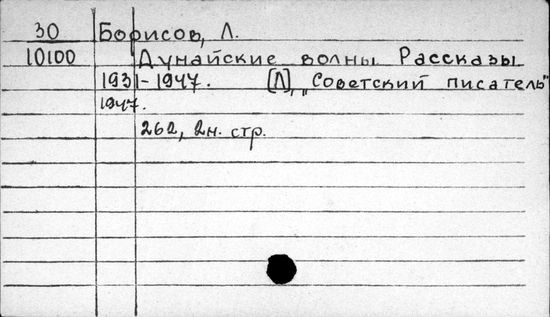 30 Борисов, Л.
10100 Дунайские волны Рассказы
1931-1947. [Л], "Советский писатель"
1947.
262, 2н. стр.